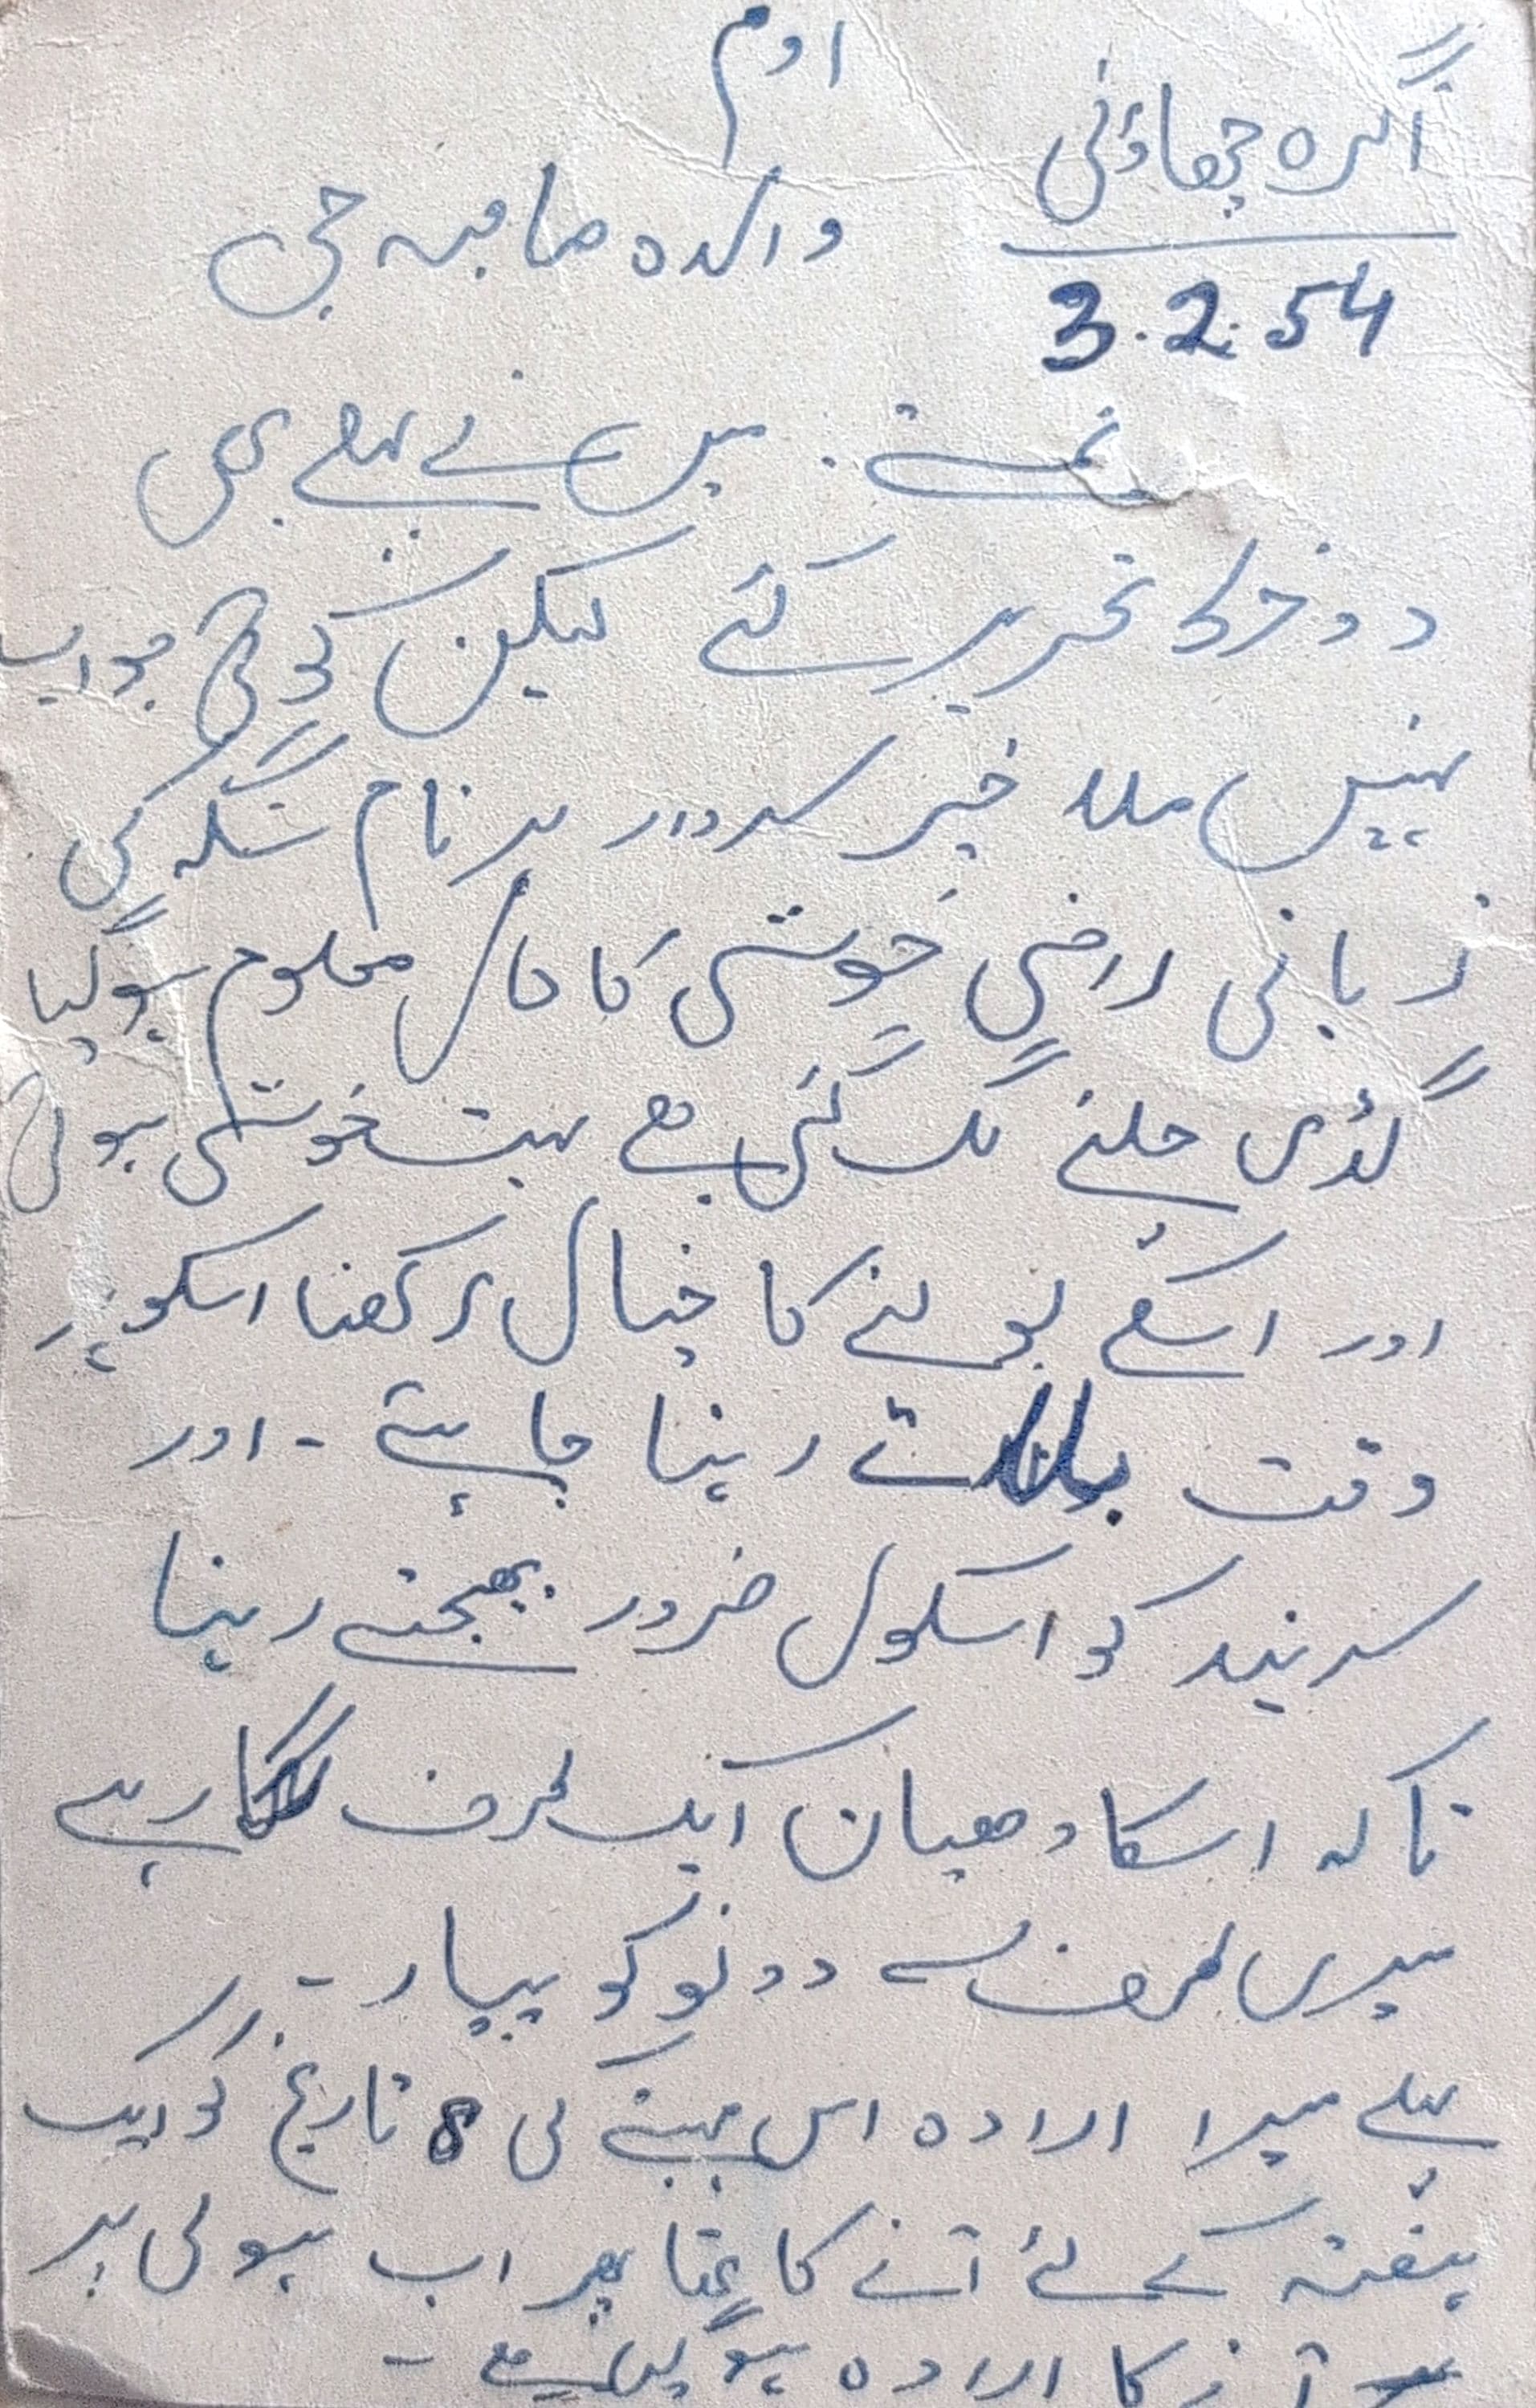 اوم
آگرہ چھاؤنی
والدہ صاحبہ جی
3.2.54
نمستے۔ میں نے پہلے بھی
دو خط تحریر کئے لیکن کوئی جواب
نہیں ملا خیر سردار ہرنام سنگھ کی
زبانی راضی خوشی کا حال معلوم ہوگیا
گڈی چلنے لگ گئی ہے بہت خوشی ہوئی
اور اسکے بولنے کا خیال رکھنا اسکو ہر
وقت بلاتے رہنا چاہیئے - اور
سریند کو اسکول ضرور بھیجتے رہنا
تاکہ اسکا دھیان ایک طرف لگا رہے
میری طرف سے دونو کو پیار -
پہلے میرا ارادہ اس مہینے کی 8 تاریخ کو ایک
ہفتہ کے لئے آنے کا تھا پر اب ہولی پر
آنے کا ارادہ ہوگیا ہے -